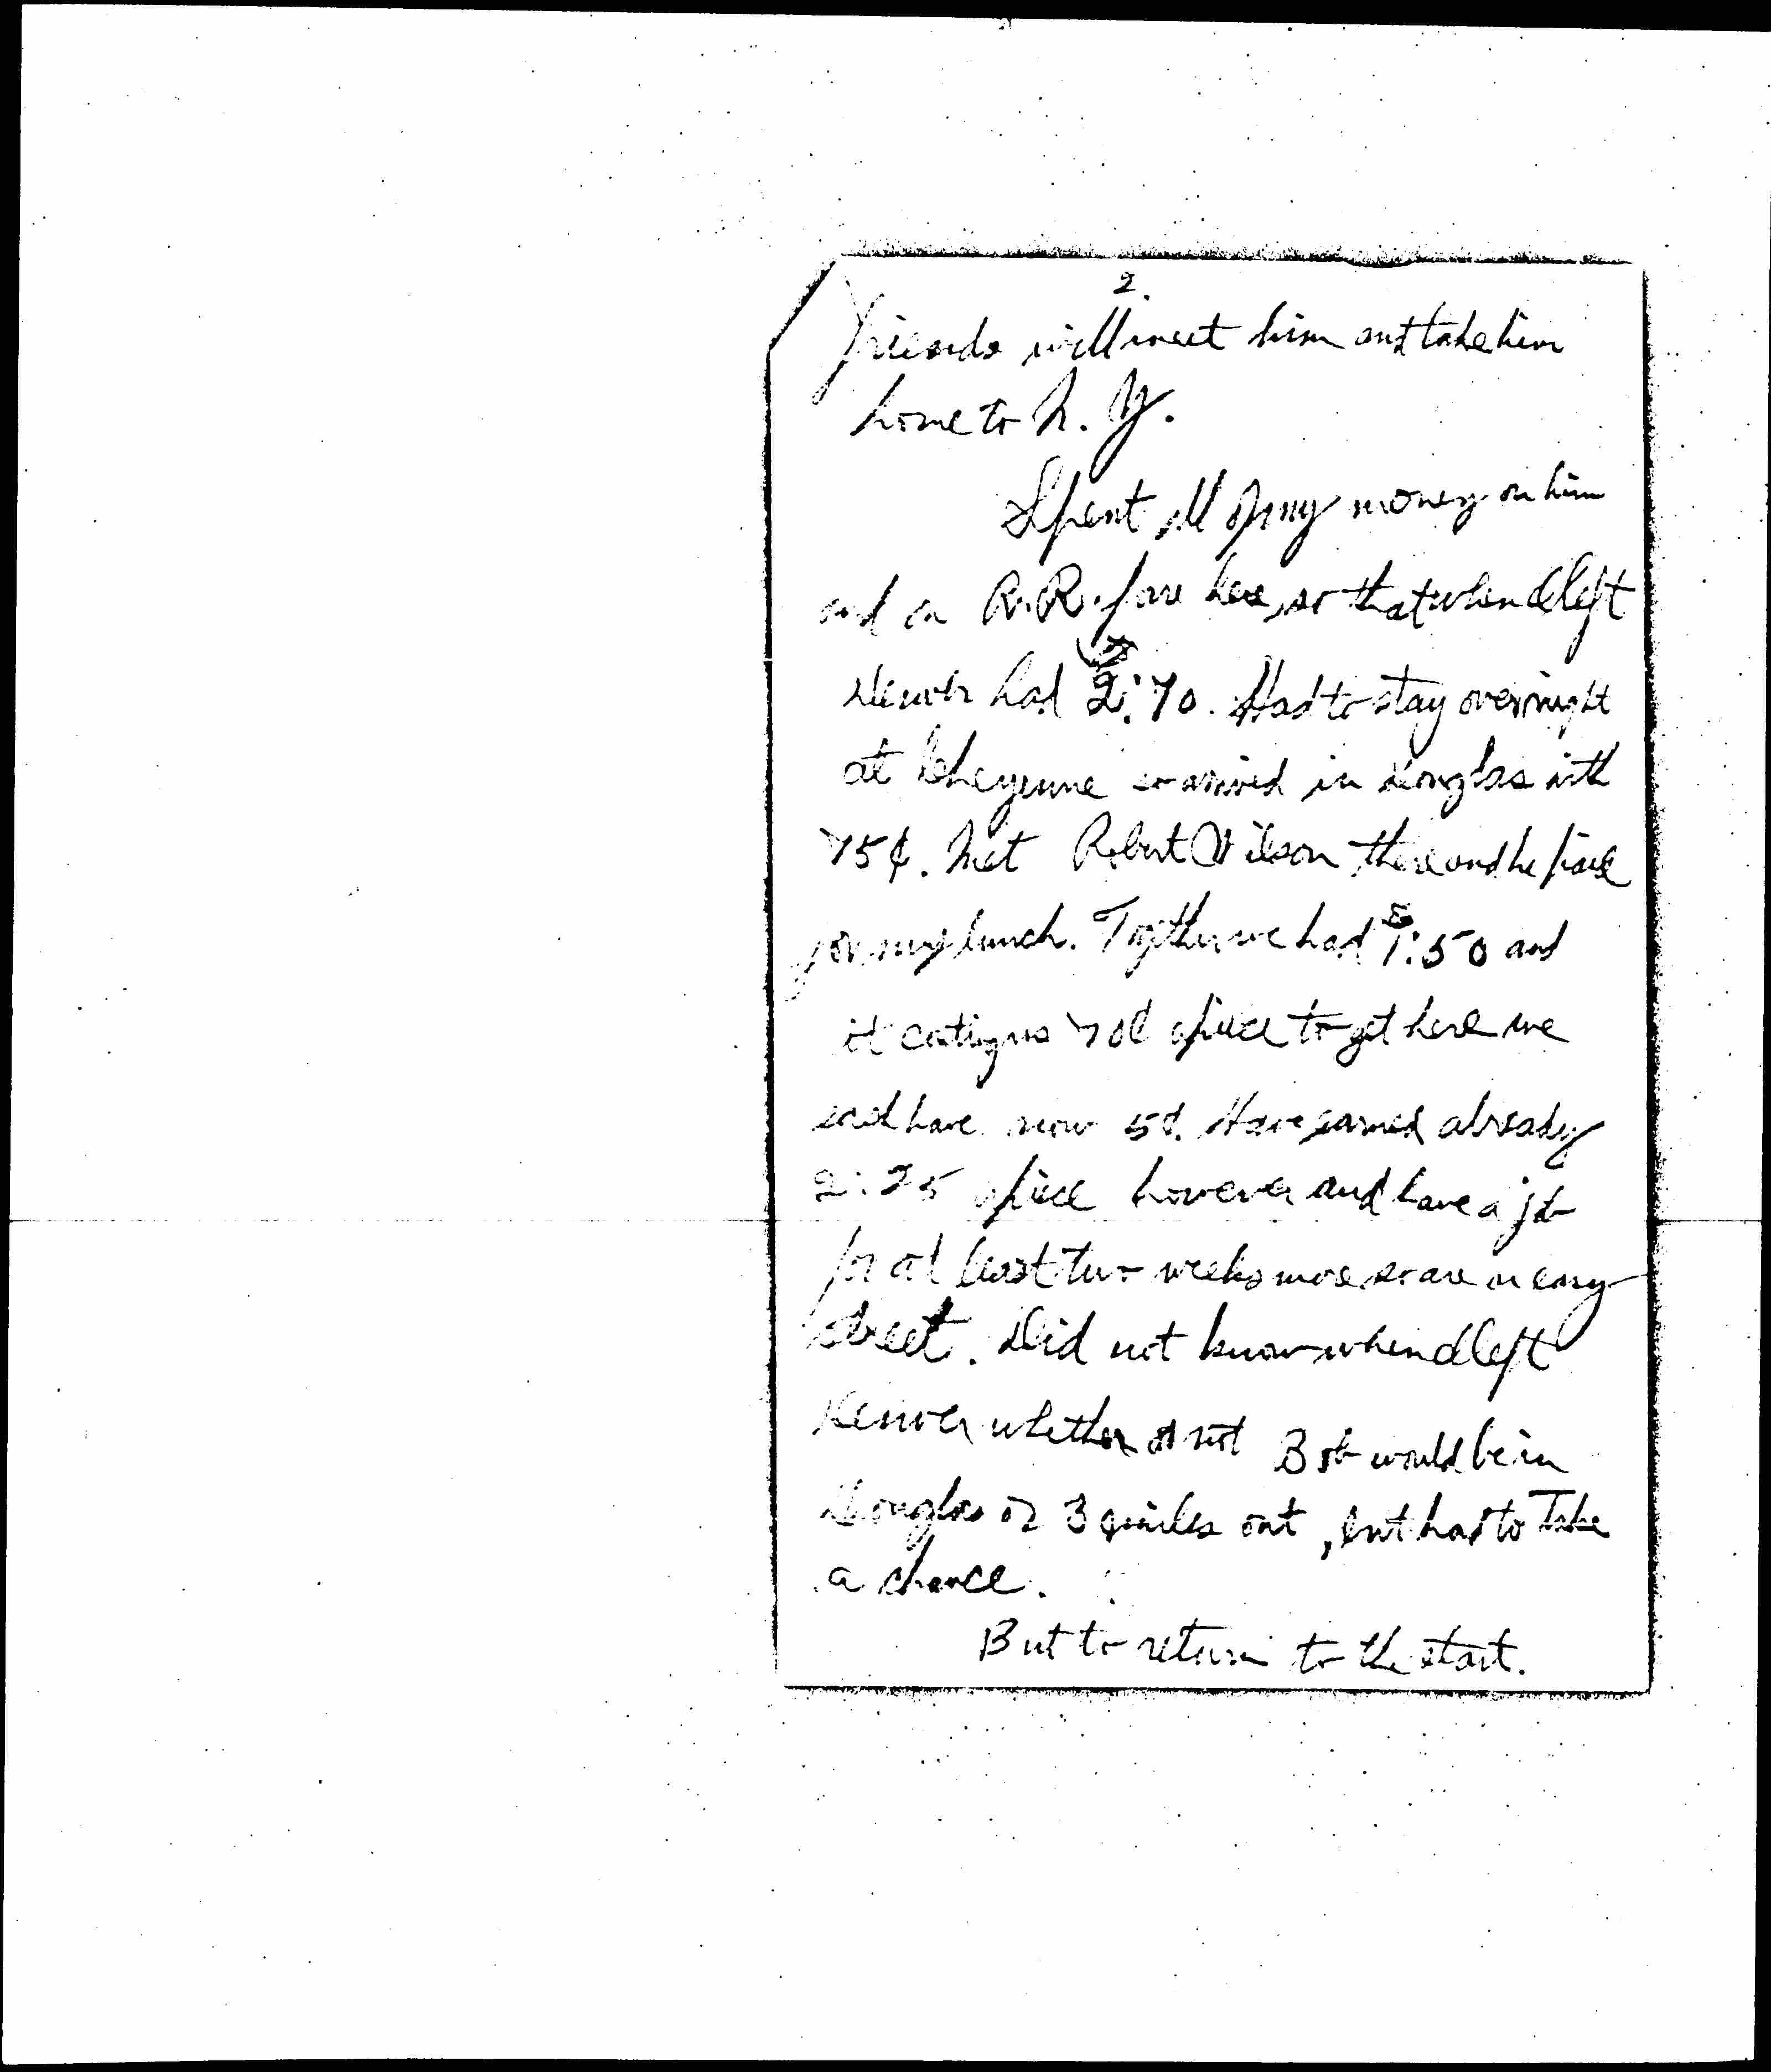 2.
friends will meet him and take him
home to N. Y.
Spent all of my money on him
and on R.R. fare here, so that when I left
Denver had 2.70. Had to stay overnight
at Cheyenne so arrived in Douglas with
75¢. Met Robert Wilson there and he paid
for my lunch. Together we had 1.50 and
it costing us 70¢ apiece to get here we
each have now 5¢. Have earned already
2.25 apiece however and have a job
for at least two weeks more so are on easy
street. Did not know when I left
Denver whether or not Bob would be in
Douglas or 30 miles out, but had to take
a chance.
But to return to the start.